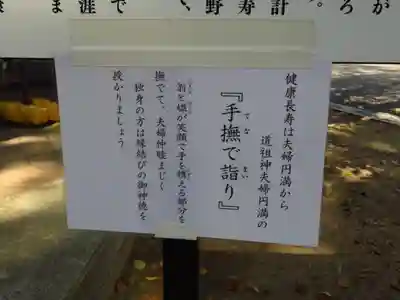 が
ろ
計。
野寿
く、
涯で
ま
健康長寿は夫婦円満から
道祖神夫婦円満の
『手撫で詣り』
てな まい
翁と媼が笑顔で手を携える部分を
撫でて、夫婦仲睦まじく
独身の方は縁結びの御神徳を
授かりましょう